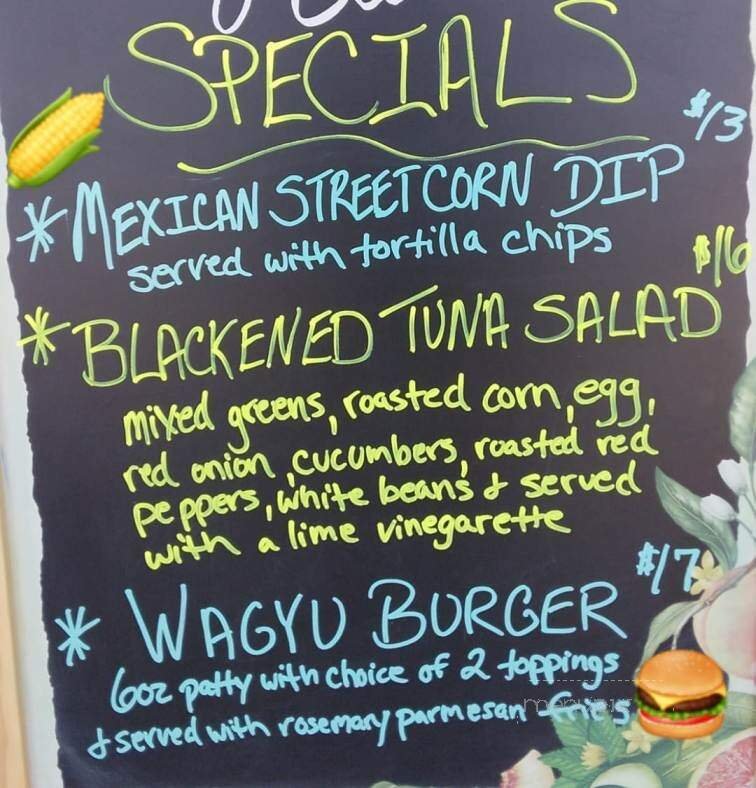 SPECIALS
$13
* MEXICAN STREET CORN DIP
served with tortilla chips
$16
* BLACKENED TUNA SALAD
mixed greens, roasted corn, egg,
red onion, cucumbers, roasted red
peppers, white beans & served
with a lime vinegarette
$17
* WAGYU BURGER
6oz patty with choice of 2 toppings
& served with rosemary parmesan fries